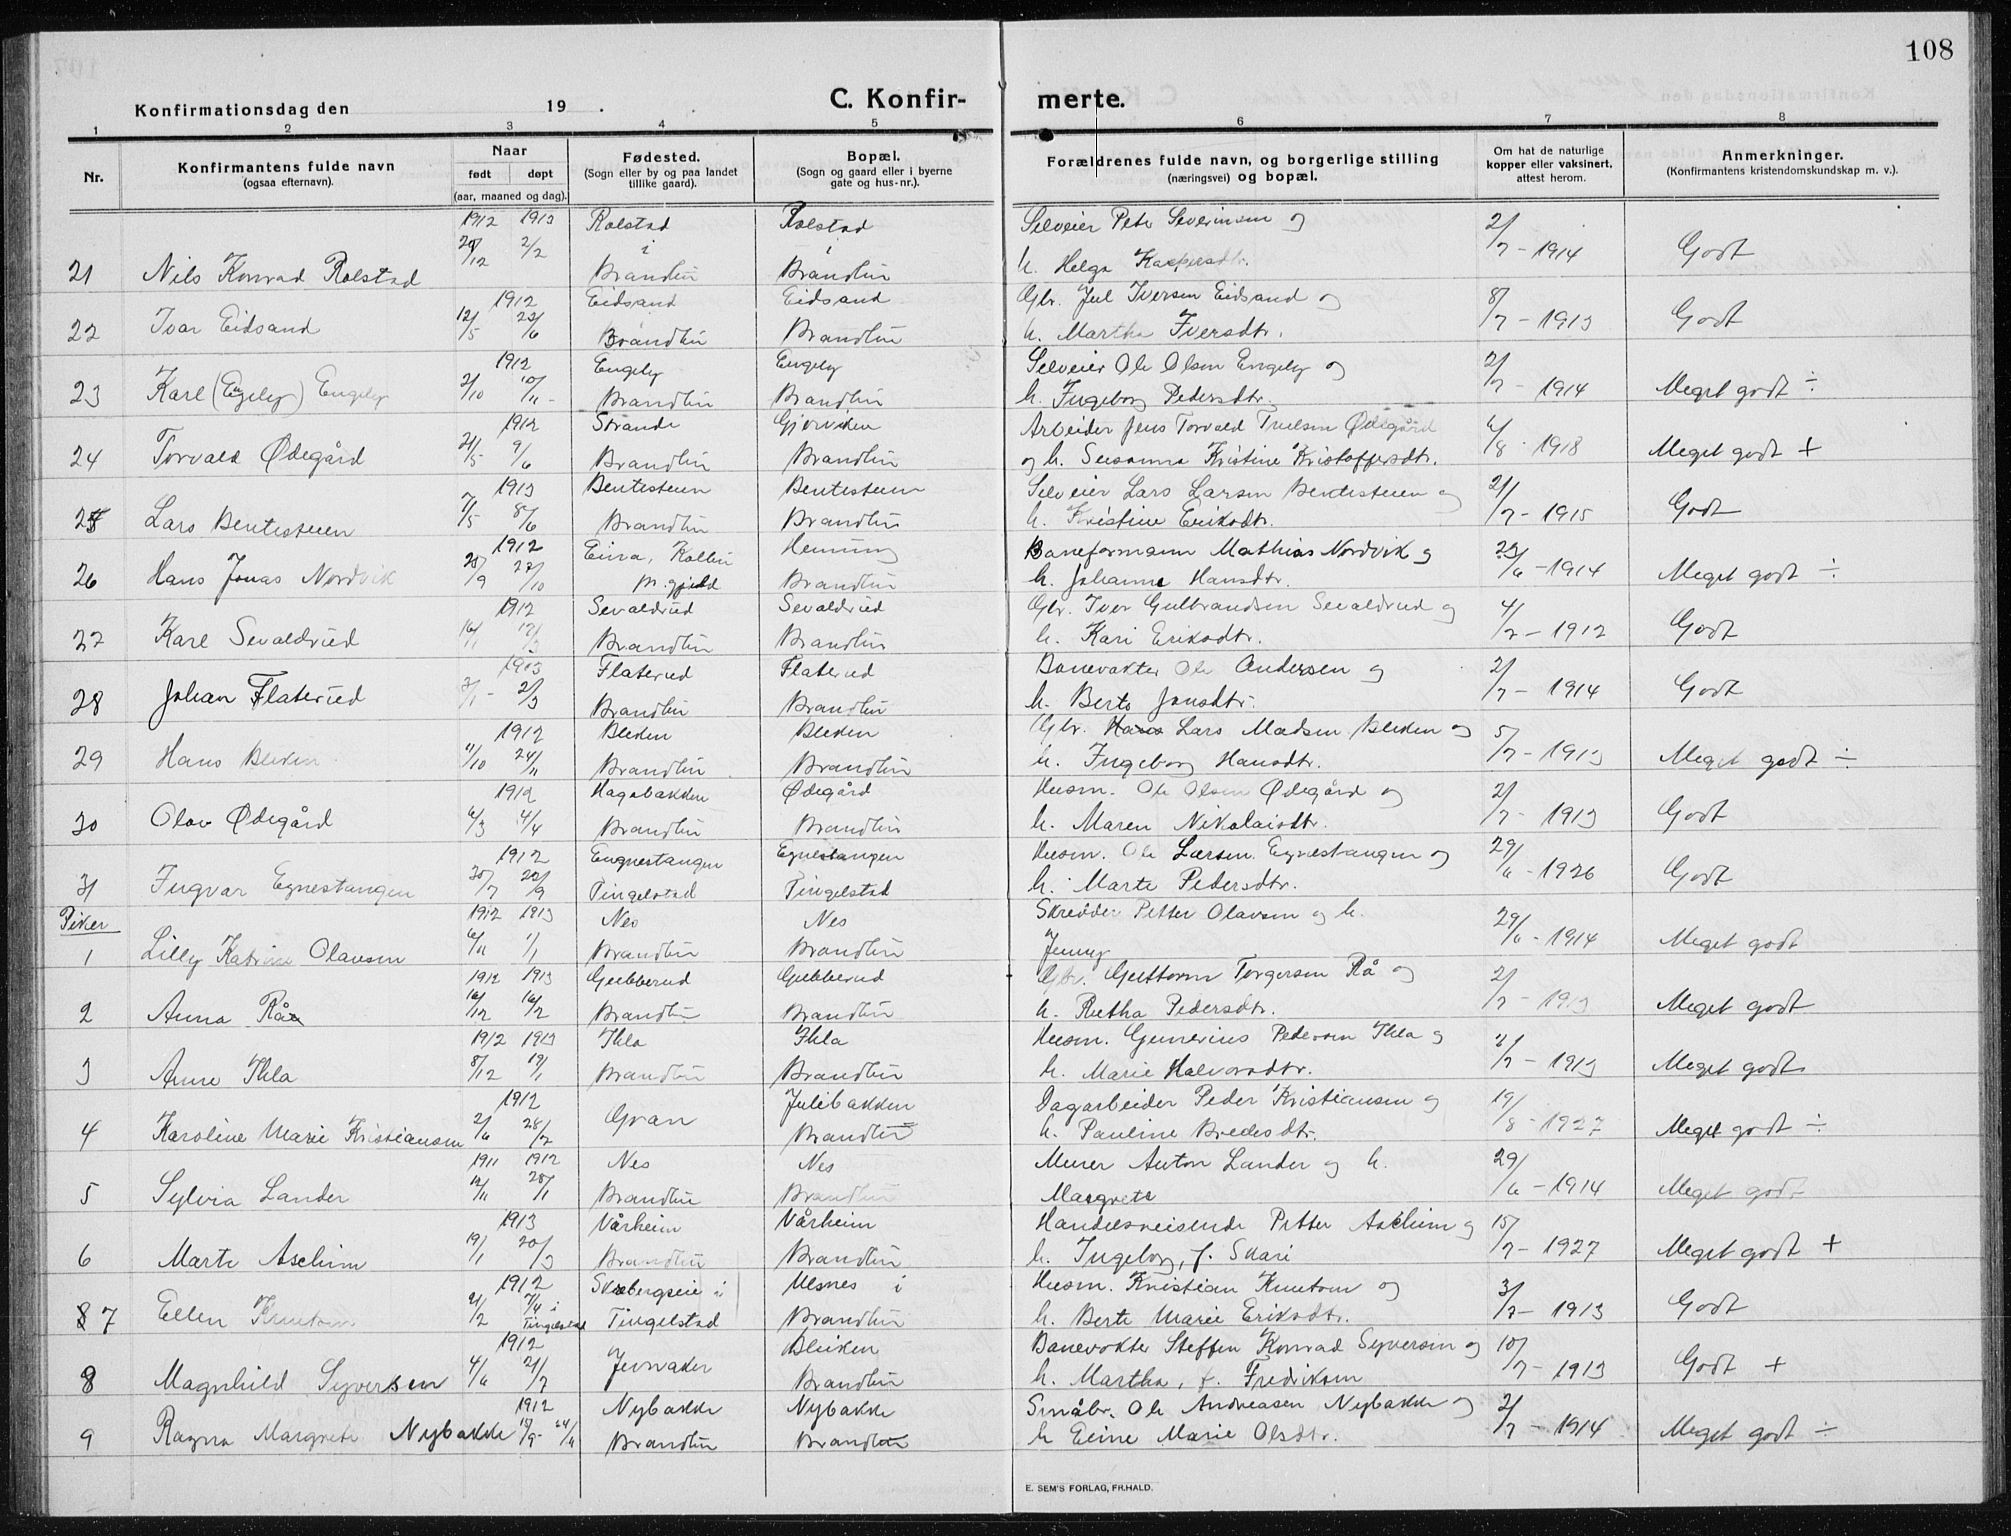 108
Konfirmationsdag den 19 .
C. Konfir- merte.
1 2 3 4 5 6 7 8
Nr. Konfirmantens fulde navn (ogsaa efternavn). Naar født døpt (aar, maaned og dag). Fødested. (Sogn eller by og paa landet tillike gaard). Bopæl. (Sogn og gaard eller i byerne gate og hus-nr.). Forældrenes fulde navn, og borgerlige stilling (næringsvei) og bopæl. Om hat de naturlige kopper eller vaksinert, attest herom. Anmerkninger. (Konfirmantens kristendomskundskap m. v.).
1912 1913 Rolstad Rolstad Selveier Peter Severinsen og 2/
21 Nils Konrad Rolstad 29/12 2/2 i Brandbu i Brandbu h. Helga Kaspersdtr. 7 - 1914 Godt
1912 Eidsand Eidsand Gbr. Jul Iversen Eidsand og 8/
22 Ivar Eidsand 12/5 23/6 Brandbu Brandbu h. Martha Iversdtr. 7 - 1913 Godt
1912 Engely Engely Selveier Ole Olsen Engely og 2/
23 Karl (Engely) Engely 2/10 10/11 - Brandbu Brandbu h. Ingeborg Pedersdtr. 7 - 1914 Meget godt ÷
1912 Strande Gjørviken Arbeider Jens Torvald Truelsen Ødegård 6/
24 Torvald Ødegård 21/5 9/6 Brandbu Brandbu og h. Susanna Kristine Kristoffersdtr. 8 - 1918 Meget godt +
1913 Bentesteuen Bentesteuen Selveier Lars Larsen Bentesteuen og 21/
25 Lars Bentesteuen 7/5 8/6 Brandbu Brandbu h. Kristine Eriksdtr. 7 - 1915 Godt
1912 Eina, Kolbu Hennung Baneformann Mathias Nordvik og 23/
26 Hans Jonas Nordvik 28/9 27/10 pr.gjeld Brandbu h. Johanne Hansdtr. 6 - 1914 Meget godt ÷
1912 Sevaldrud Sevaldrud Gbr. Iver Gulbrandsen Sevaldrud og 4/
27 Karl Sevaldrud 16/1 17/3 Brandbu Brandbu h. Kari Eriksdtr. 7 - 1912 Godt
1913 Flaterud Flaterud Banevokter Ole Andersen og 2/
28 Johan Flaterud 3/1 - 2/3 Brandbu Brandbu h. Berte Jonsdtr. 7 - 1914 Godt
1912 Bleken Bleken Gbr. Hans Lars Madsen Bleken og 5/
29 Hans Bleken 11/10 24/11 Brandbu Brandbu h. Ingeborg Hansdtr. 7 - 1913 Meget godt ÷
1912 Hagabakken Ødegård Husm. Ole Olsen Ødegård og 2/
30 Olav Ødegård 6/3 4/4 Brandbu Brandbu h. Maren Nikolaisdtr. 7 - 1913 Godt
1912 Engnestangen Egnestangen Husm. Ole Larsen Egnestangen og 29/
31 Ingvar Egnestangen 30/7 22/9 Tingelstad Tingelstad h. Marte Pedersdtr. 6 - 1926 Godt
Piker 1912 1913 Nes Nes Skredder Petter Olavsen og h. 29/
1 Lilly Katrine Olavsen 6/11 1/1 Brandbu Brandbu Jenny 6 - 1914 Meget godt
1912 1913 Gubberud Gubberud Gbr. Guttorm Torgersen Rå og 2/
2 Anna Rå 16/12 16/2 Brandbu Brandbu h. Rutha Pedersdtr. 7 - 1913 Meget godt
1912 1913 Ihla Ihla Husm. Gunerius Pedersen Ihla og 2/
3 Anne Ihla 8/12 19/1 Brandbu Brandbu h. Marie Halvorsdtr. 7 - 1913 Meget godt
1912 Julibakken Dagarbeider Peder Kristiansen og 19/
4 Karoline Marie Kristiansen 2/6 28/7 Gran Brandbu h. Pauline Bredesdtr. 8 - 1927 Meget godt ÷
1911 1912 Nes Nes Murer Anton Lander og h. 29/
5 Sylvia Lander 12/11 28/1 Brandbu Brandbu Margrete 6 - 1914 Meget godt
1913 Vårheim Vårheim Handelsreisende Petter Aschim og 15/
6 Marte Aschim 19/1 20/3 Brandbu Brandbu h. Ingeborg, f. Skari 7 - 1927 Meget godt +
1912 Skobergseie i Ulsnes i Husm. Kristian Knutson og 3/
8 7 Ellen Knutson 21/2 7/4 i Tingelstad Tingelstad Brandbu h. Berte Marie Eriksdtr. 7 - 1913 Godt
1912 Bleiken Banevokter Steffen Konrad Syversen og 10/
8 Magnhild Syversen 4/6 21/7 Jevnaker Brandbu h. Martha, f. Fredriksen 7 - 1913 Godt +
1912 Nybakke Nybakke Småbr. Ole Andreasen Nybakke og 2/
9 Ragna Margrete Nybakke 18/9 - 24/11 Brandbu Brandbu h Eline Marie Olsdtr. 7 - 1914 Meget godt ÷
E. SEM'S FORLAG, FR.HALD.